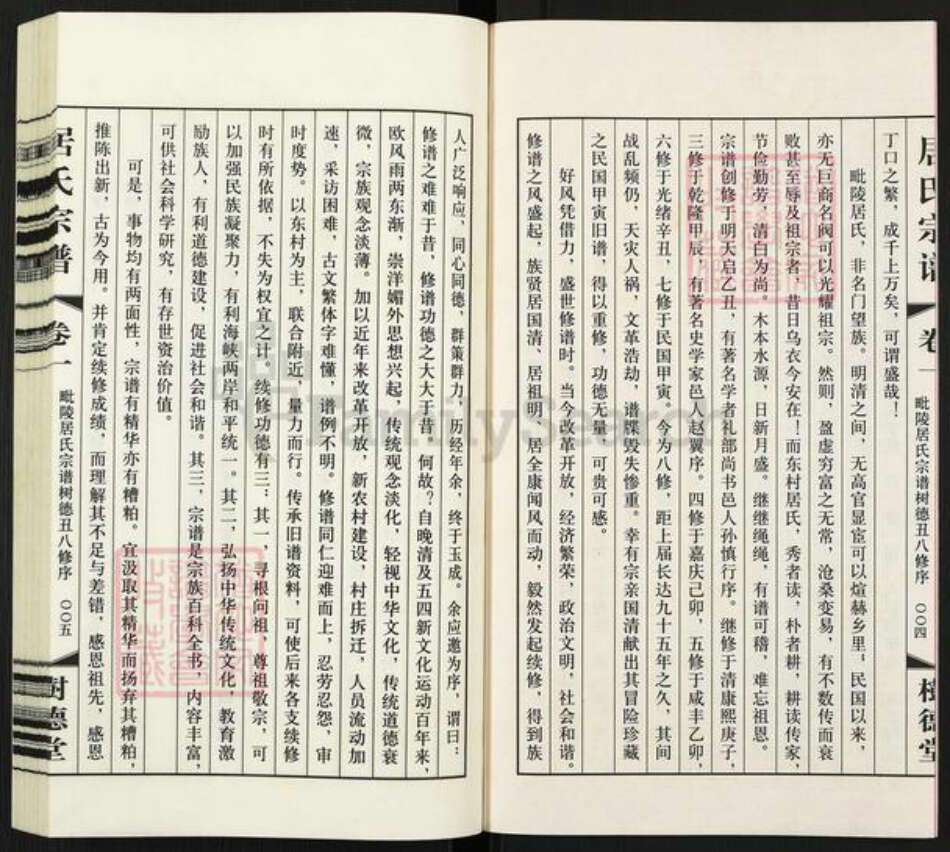 居氏宗谱 卷一 毗陵居氏宗谱树德丑八修序 〇〇四 树德堂
丁口之繁，成千上万矣，可谓盛哉！
毗陵居氏，非名门望族。明清之间，无高官显宦可以煊赫乡里；民国以来，
亦无巨商名阀可以光耀祖宗。然则，盈虚穷富之无常，沧桑变易，有不数传而衰
败甚至辱及祖宗者，昔日乌衣今安在！而东村居氏，秀者读，朴者耕，耕读传家，
节俭勤劳，清白为尚。木本水源，日新月盛。继继绳绳，有谱可稽，难忘祖恩。
宗谱创修于明天启乙丑，有著名学者礼部尚书邑人孙慎行序。继修于清康熙庚子，
三修于乾隆甲辰，有著名史学家邑人赵翼序。四修于嘉庆己卯，五修于咸丰乙卯，
六修于光绪辛丑，七修于民国甲寅，今为八修，距上届长达九十五年之久，其间
战乱频仍，天灾人祸，文革浩劫，谱牒毁失惨重。幸有宗亲国清献出其冒险珍藏
之民国甲寅旧谱，得以重修，功德无量，可贵可感。
好风凭借力，盛世修谱时。当今改革开放，经济繁荣，政治文明，社会和谐。
修谱之风盛起，族贤居国清、居祖明、居全康闻风而动，毅然发起续修，得到族
人广泛响应，同心同德，群策群力，历经年余，终于玉成。余应邀为序，谓曰：
修谱之难难于昔，修谱功德之大大于昔，何故？自晚清及五四新文化运动百年来，
欧风雨两东渐，崇洋媚外思想兴起，传统观念淡化，轻视中华文化，传统道德衰
微，宗族观念淡薄。加以近年来改革开放，新农村建设，村庄拆迁，人员流动加
速，采访困难，古文繁体字难懂，谱例不明。修谱同仁迎难而上，忍劳忍怨，审
时度势。以东村为主，联合附近，量力而行。传承旧谱资料，可使后来各支续修
时有所依据，不失为权宜之计。续修功德有三：其一，寻根问祖，尊祖敬宗，可
以加强民族凝聚力，有利海峡两岸和平统一。其二，弘扬中华传统文化，教育激
励族人，有利道德建设，促进社会和谐。其三，宗谱是宗族百科全书，内容丰富，
可供社会科学研究，有存世资治价值。
可是，事物均有两面性，宗谱有精华亦有糟粕。宜汲取其精华而扬弃其糟粕，
推陈出新，古为今用。并肯定续修成绩，而理解其不足与差错，感恩祖先，感恩
居氏宗谱 卷一 毗陵居氏宗谱树德丑八修序 〇〇五 树德堂
FamilySearch